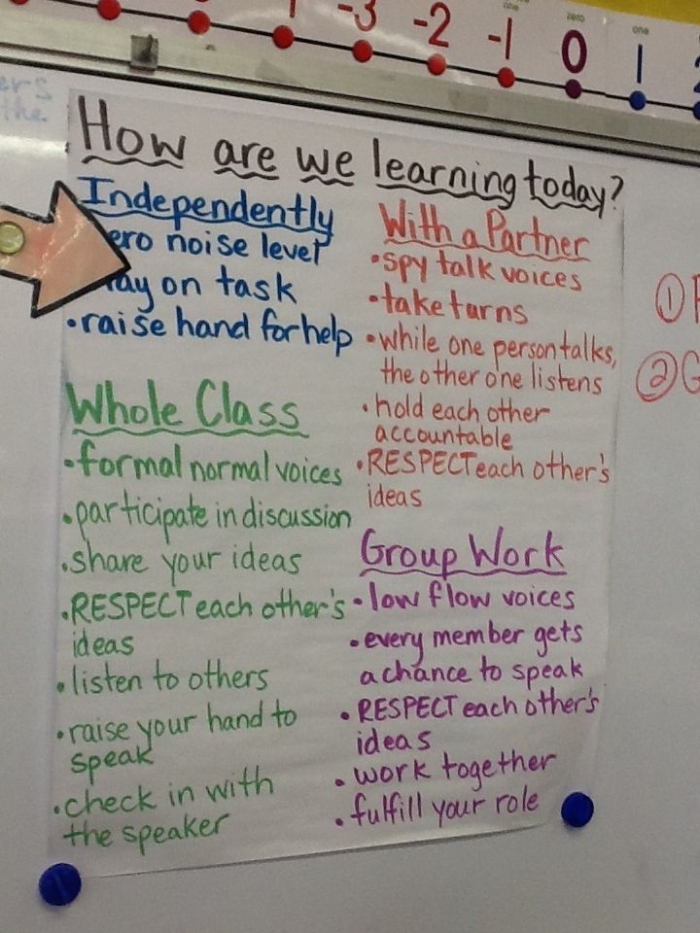 -3 -2 -1 0 1
zero
one
How are we learning today?
Independently
noise level
on task
• raise hand for help
With a Partner
• spy talk voices
• take turns
• while one person talks,
the other one listens
• hold each other
accountable
• RESPECT each other's
ideas
Whole Class
• formal normal voices
• participate in discussion
• share your ideas
• RESPECT each other's
ideas
• listen to others
• raise your hand to
speak
• check in with
the speaker
Group Work
• low flow voices
• every member gets
a chance to speak
• RESPECT each other's
ideas
• work together
• fulfill your role
①
②